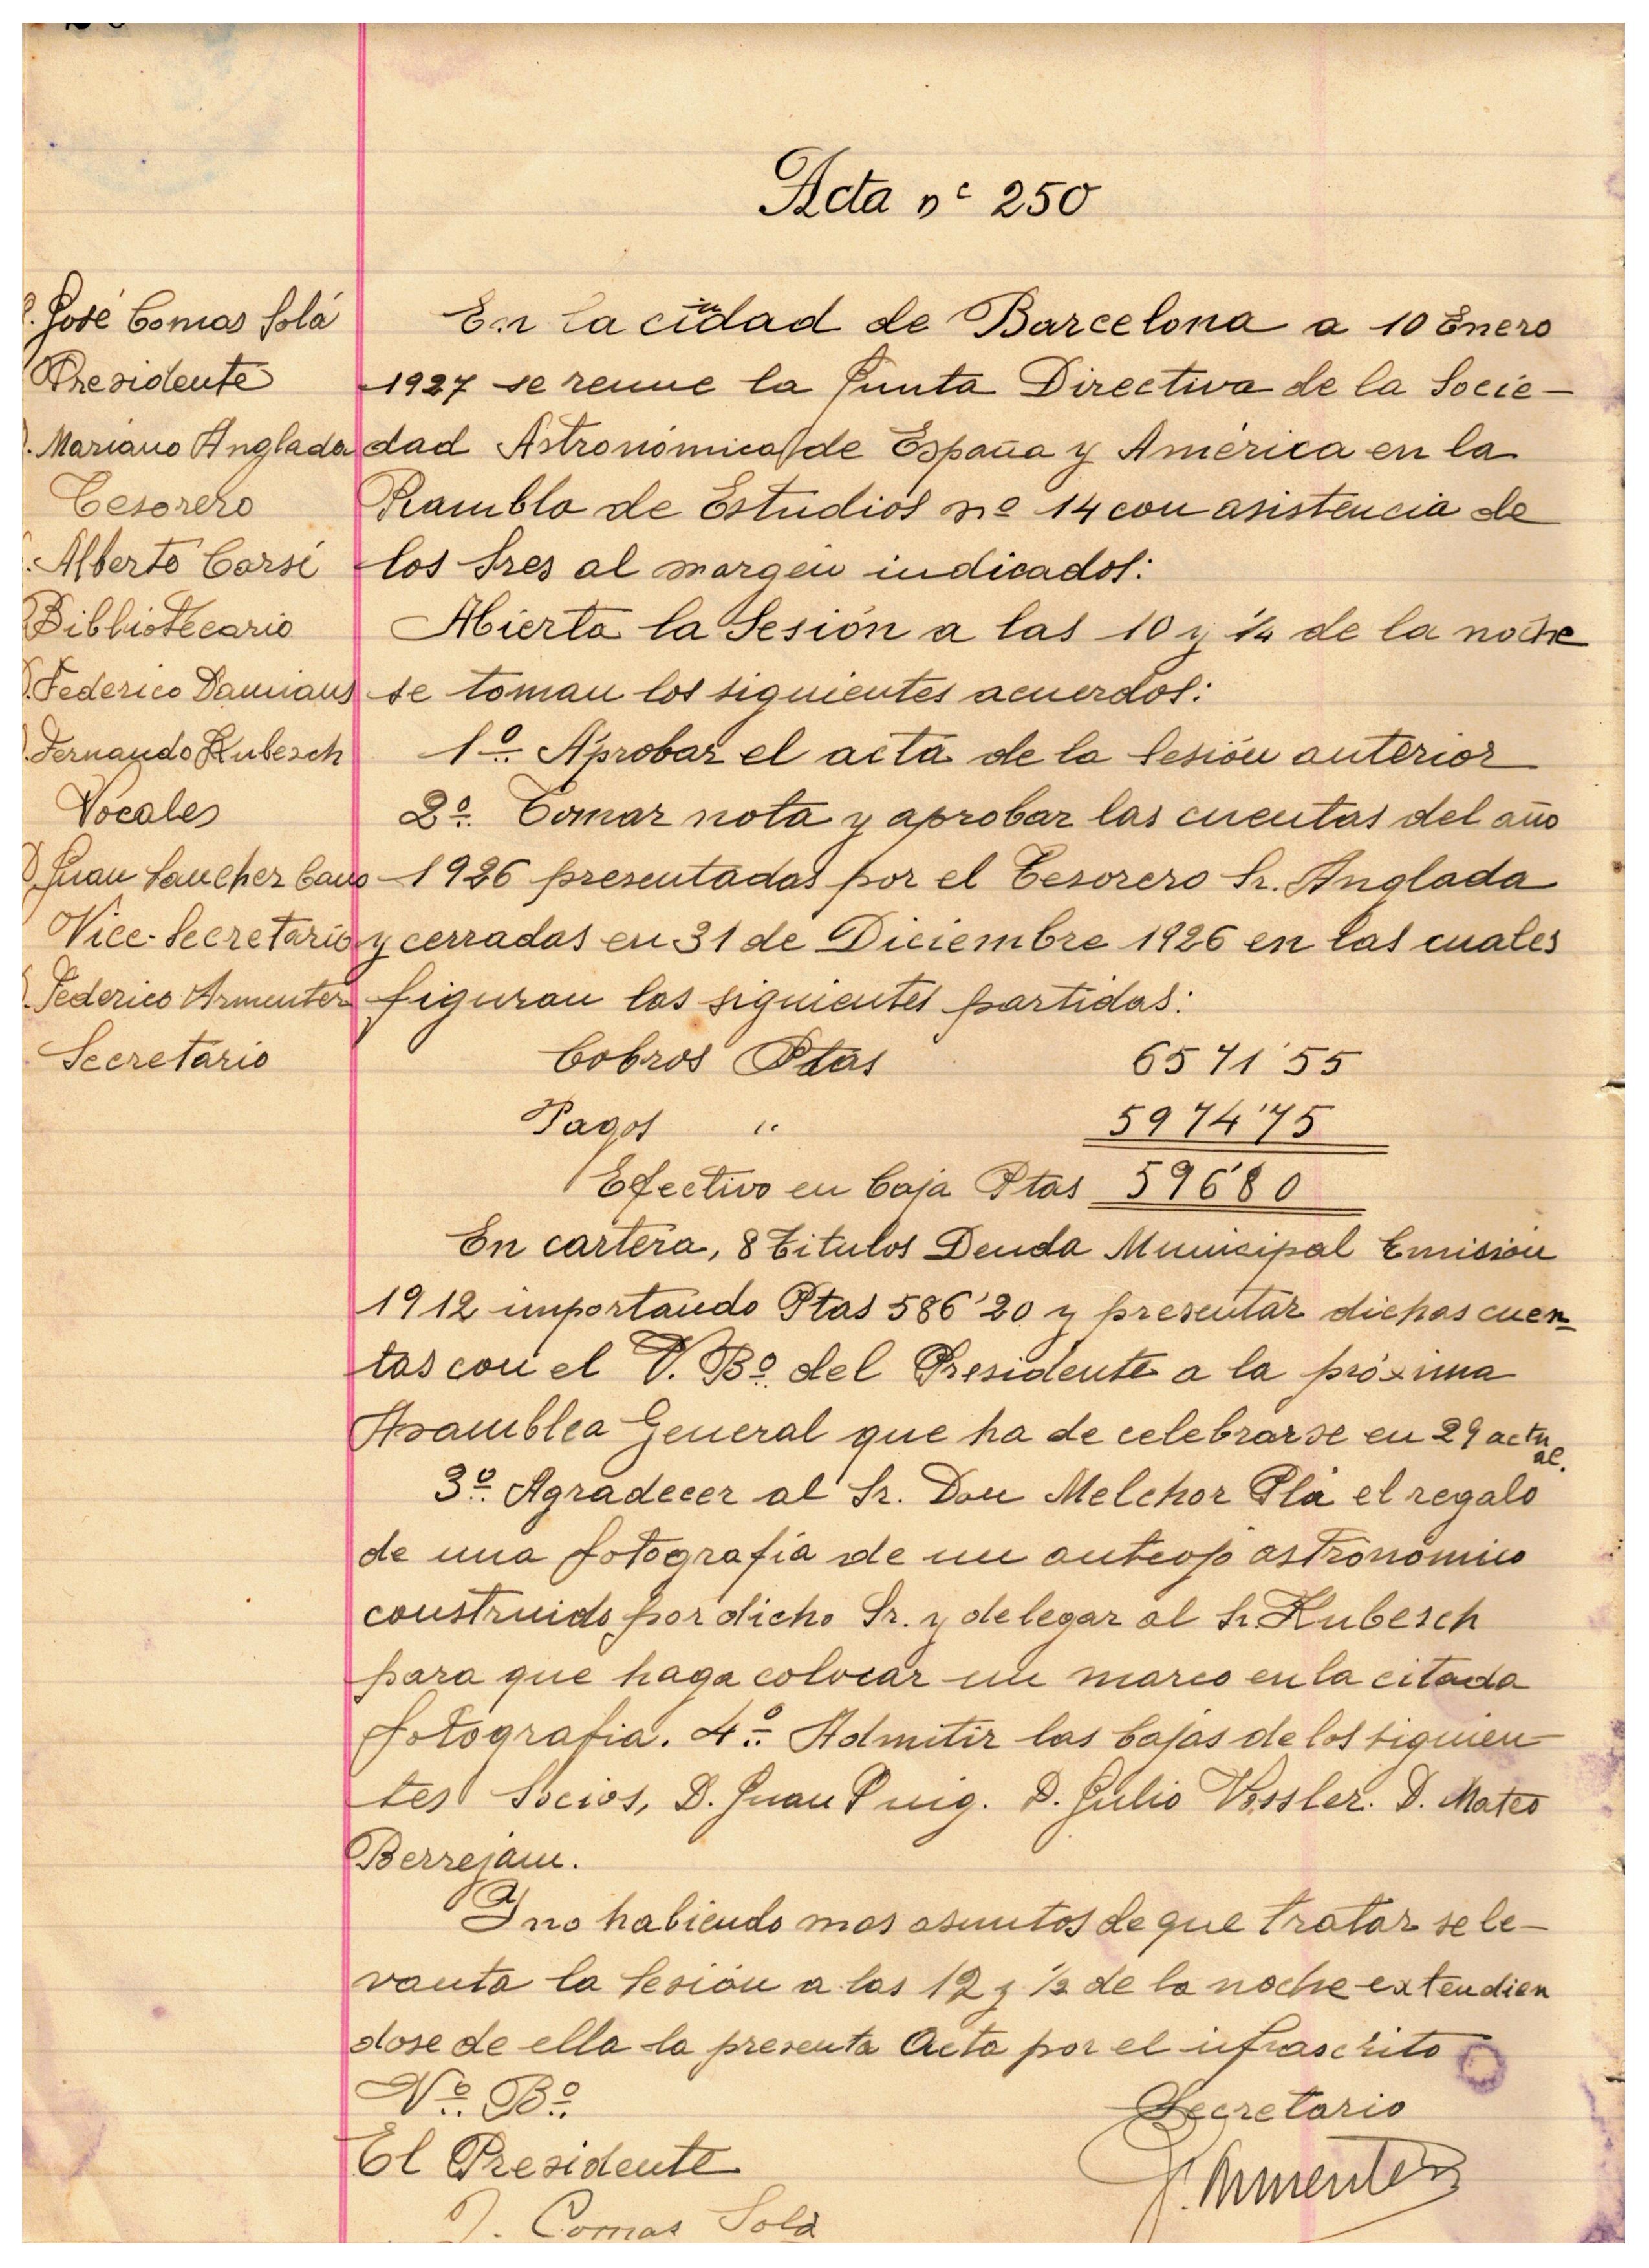 Acta nº 250
D. José Comas Solá
Presidente
D. Mariano Anglada
Tesorero
D. Alberto Carsí
Bibliotecario
D. Federico Damians
D. Fernando Kubesch
Vocales
D. Juan Sanchez Cano
Vice-Secretario
D. Federico Armenter
Secretario
En la ciudad de Barcelona a 10 Enero
1927 se reune la Junta Directiva de la Socie-
dad Astronómica de España y América en la
Rambla de Estudios nº 14 con asistencia de
los Sres al margen indicados:
Abierta la Sesión a las 10 y ¼ de la noche
se toman los siguientes acuerdos:
1º. Aprobar el acta de la Sesión anterior
2º. Tomar nota y aprobar las cuentas del año
1926 presentadas por el Tesorero Sr. Anglada
y cerradas en 31 de Diciembre 1926 en las cuales
figuran las siguientes partidas:
Cobros Ptas 6571'55
Pagos " 5974'75
Efectivo en Caja Ptas 596'80
En cartera, 8 Titulos Deuda Municipal Emisión
1912 importando Ptas 586'20 y presentar dichas cuen-
tas con el V. Bº. del Presidente a la próxima
Asamblea General que ha de celebrarse en 29 actu
al.
3º. Agradecer al Sr. Don Melchor Plá el regalo
de una fotografía de un anteojo astronómico
construido por dicho Sr. y delegar al Sr. Kubesch
para que haga colocar un marco en la citada
fotografia. 4º. Admitir las bajas de los siguien-
tes Socios, D. Juan Puig. D. Julio Vossler. D. Mateo
Berrejam.
Y no habiendo mas asuntos de que tratar se le-
vanta la Sesión a las 12 y ½ de la noche extendien
dose de ella la presenta Acta por el infrascrito
Vº. Bº.
Secretario
El Presidente
F. Armenter
J. Comas Solá